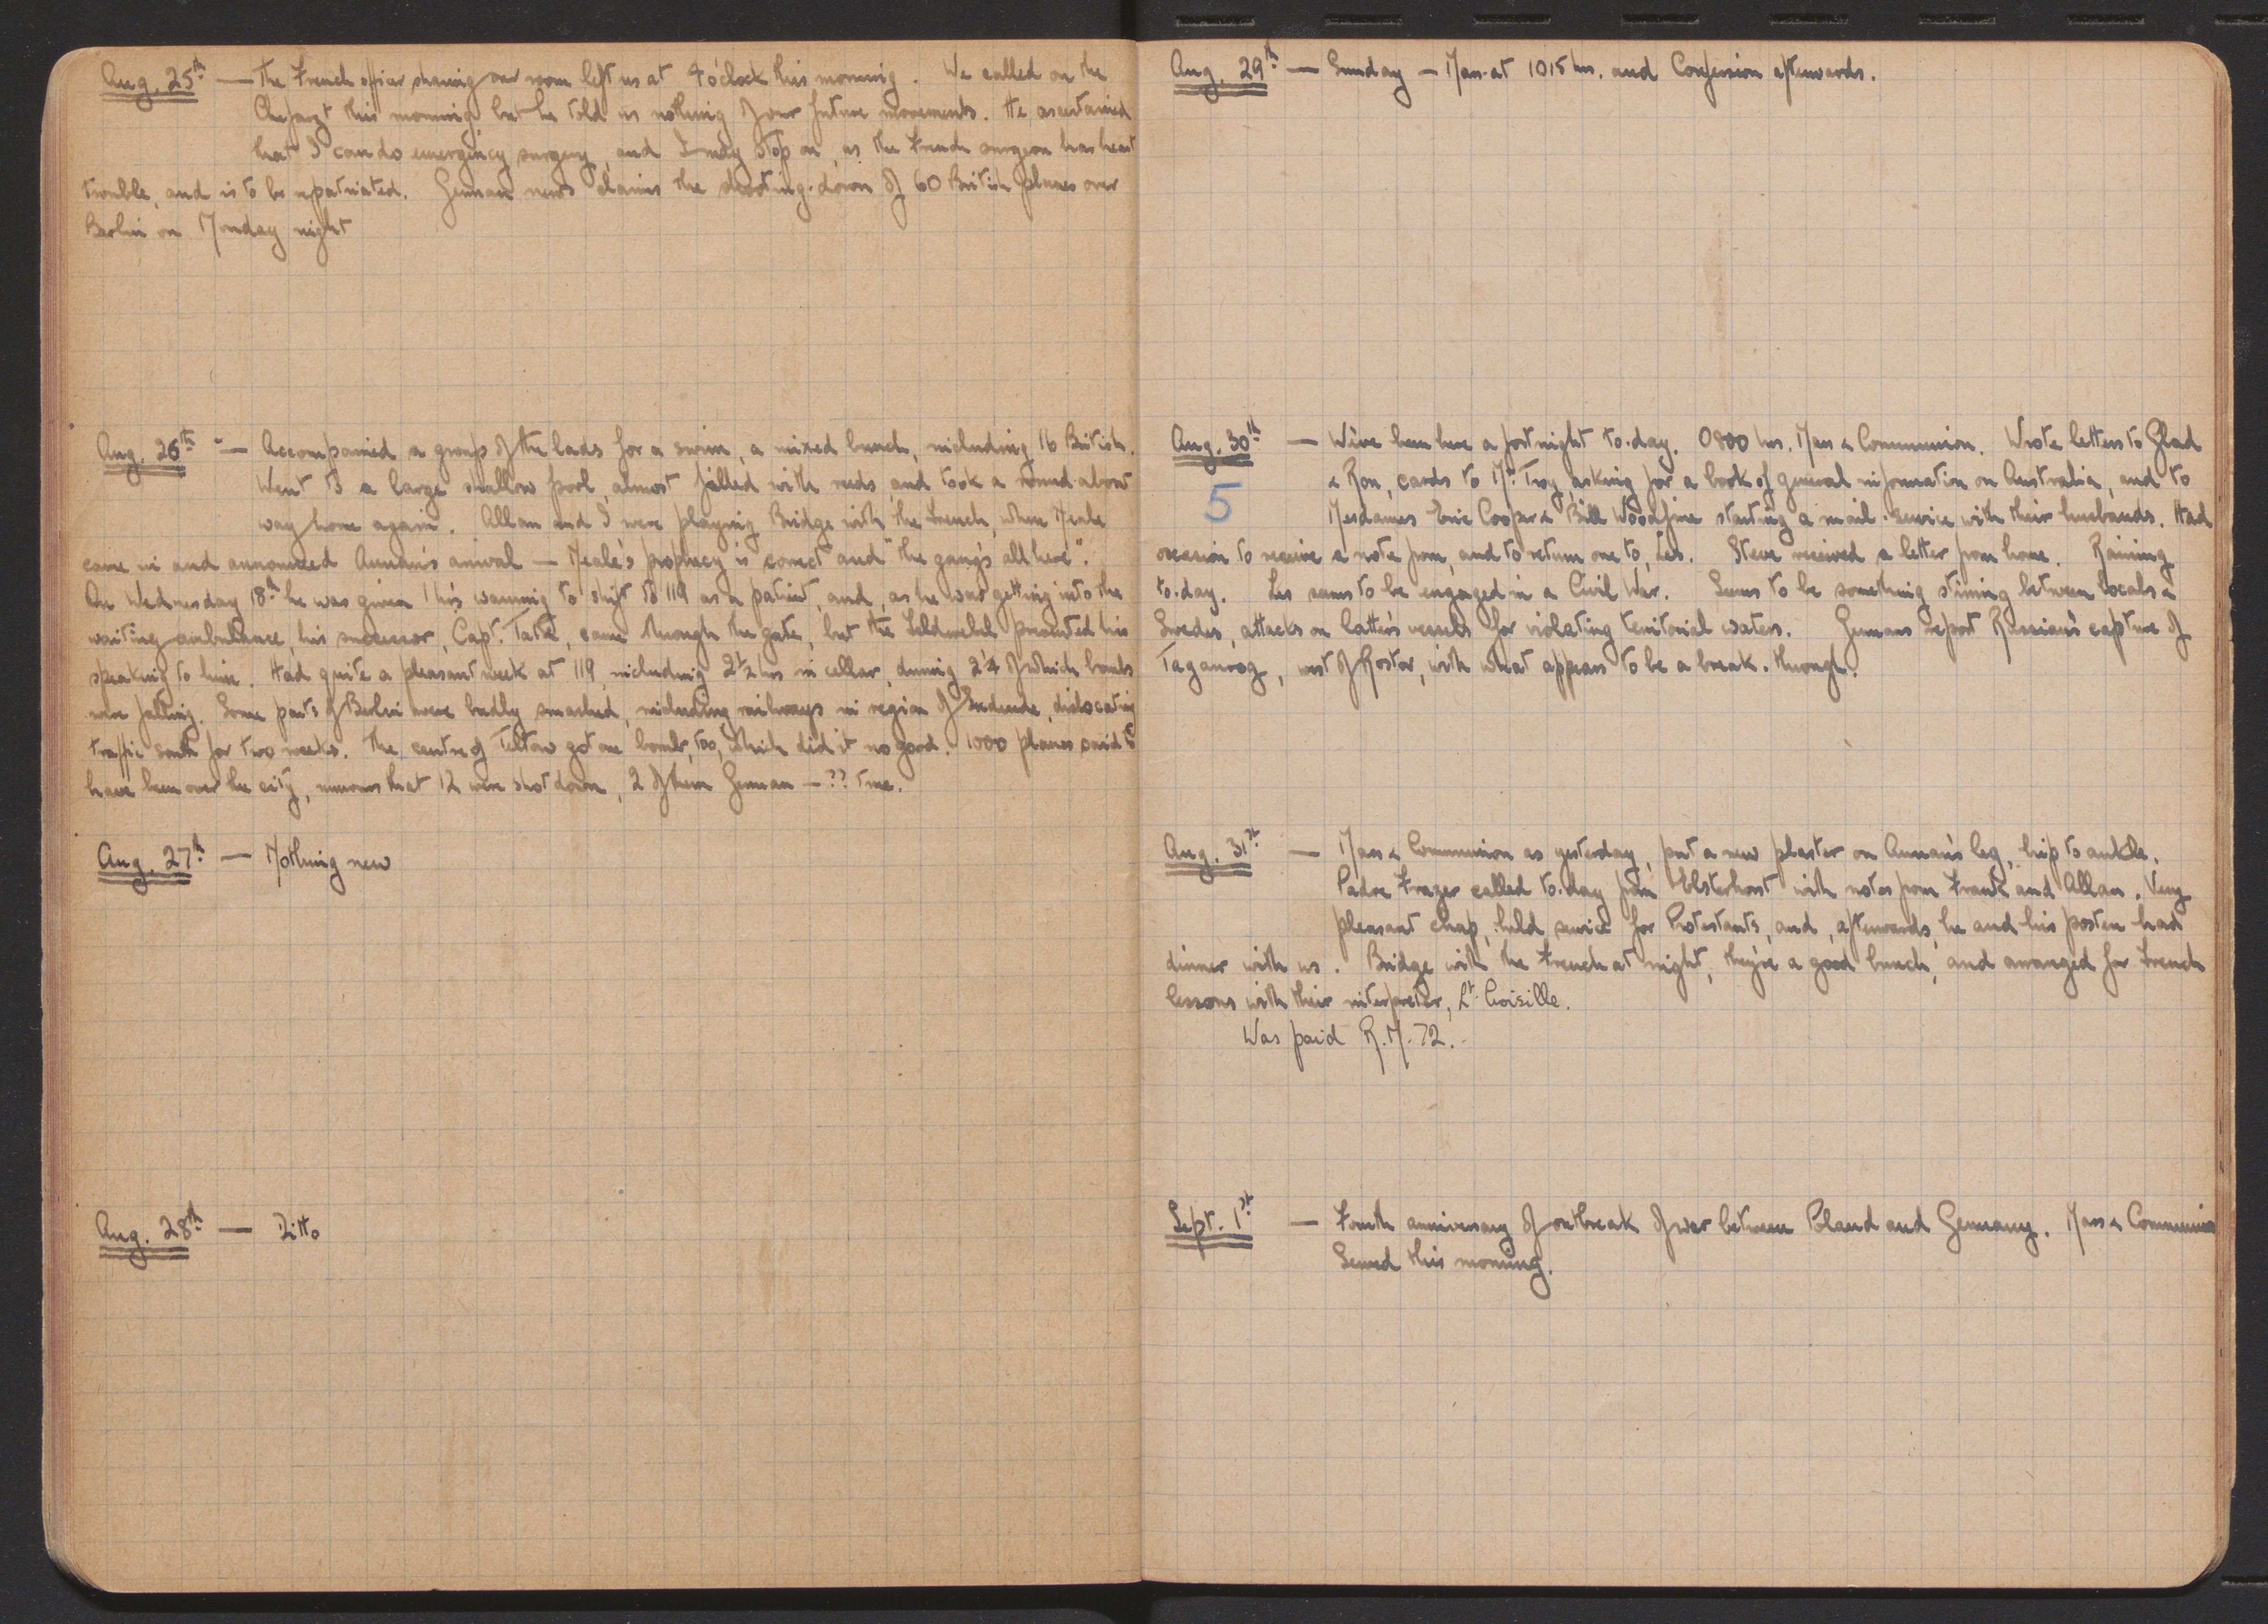 Aug. 25th — The French officer sharing our room left us at 4 o'clock this morning. We called on the
Chefarzt this morning but he told us nothing of our future movements. He ascertained
that I can do emergency surgery, and I may stop on, as the French surgeon has heart
trouble, and is to be repatriated. German news claims the shooting-down of 60 British planes over
Berlin on Monday night
Aug. 26th — Accompanied a group of the lads for a swim, a mixed bunch, including 16 British.
Went to a large shallow pool, almost filled with reeds, and took a round-about
way home again. Allan and I were playing Bridge with the French, when Neale
came in and announced Annan's arrival — Neale's prophecy is correct and "the gang's all here".
On Wednesday 18th he was given 1 hr's warning to shift to 119 as a patient, and, as he was getting into the
waiting ambulance, his successor, Capt. Tate, came through the gate, but the Feldwebel prevented his
speaking to him. Had quite a pleasant week at 119, including 2½ hrs in cellar, during 2¼ of which bombs
were falling. Some parts of Berlin were badly smashed, including railways in region of, dislocating
traffic south for two weeks. The centre of Teltow got one bomb, too, which did it no good. 1000 planes said to
have been over the city, rumours that 12 were shot down, 2 of them German — ?? true.
Aug. 27th — Nothing new
Aug. 28th — Ditto
Aug. 29th — Sunday — Mass at 1015 hrs. and Confession afterwards.
Aug. 30th — We've been here a fortnight to-day. 0800 hrs. Mass & Communion. Wrote letters to Glad
& Ron, cards to Mr. Troy, asking for a book of general information on Australia, and to
5
Mesdames Eric Cooper & Bill Woodfine starting a mail-service with their husbands. Had
occasion to receive a note from, and to return one to, Les. Steve received a letter from home. Raining
to-day. Les seems to be engaged in a Civil War. Seems to be something stirring between Locals &
Swedes, attacks on latter's vessels for violating territorial waters. Germans report Russian's capture of
Taganrog, west of Rostov, with what appears to be a break-through.
Aug. 31st — Mass & Communion as yesterday, put a new plaster on Annan's leg, hip to ankle.
Padre Frazer called to-day from Elsterhorst with notes from Frank and Allan. Very
pleasant chap, held service for Protestants, and, afterwards, he and his posten had
dinner with us. Bridge with the French at night, they're a good bunch, and arranged for French
lessons with their interpreter, Lt. Croisille.
Was paid R.M. 72.-
Sept. 1st — Fourth anniversary of outbreak of war between Poland and Germany. Mass & Communion
Served this morning.